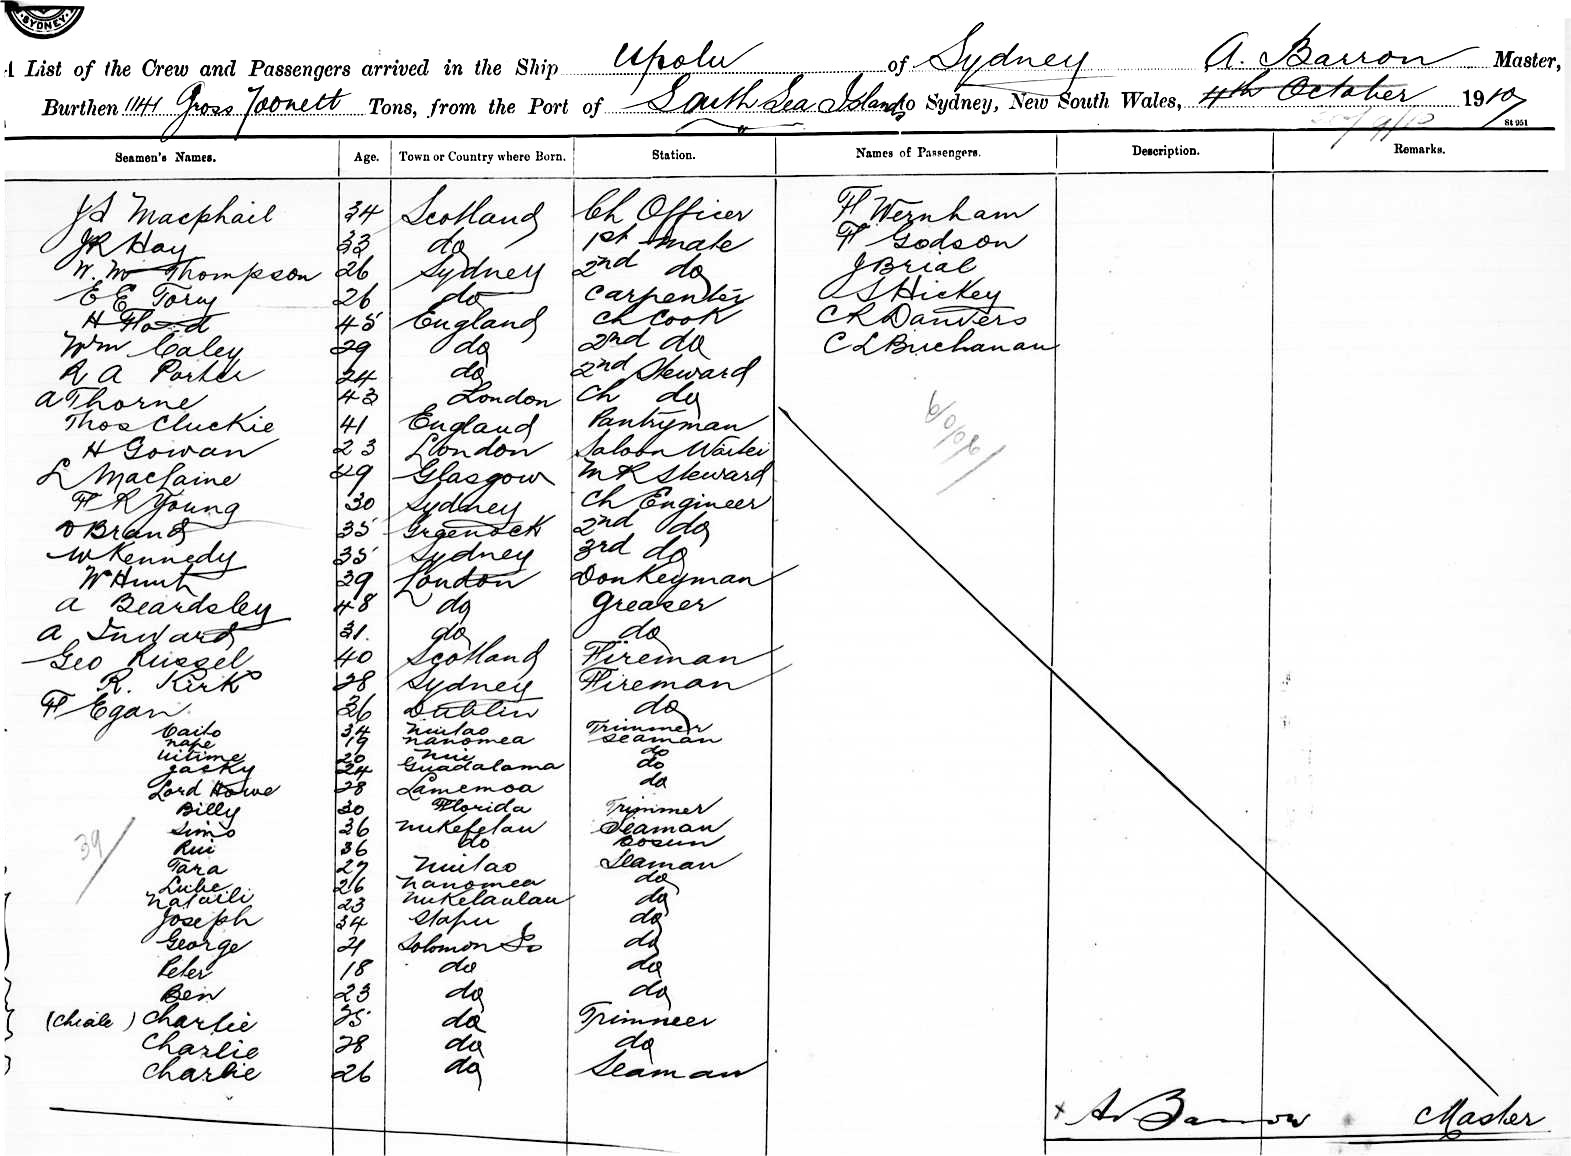 SYDNEY.
List of the Crew and Passengers arrived in the Ship Upolu of Sydney A. Barron Master,
Burthen 1141 Gross Tons, from the Port of South Sea Islands to Sydney, New South Wales, 4th October 1910
St 951
Seamen's Names. Age. Town or Country where Born. Station. Names of Passengers. Description. Remarks.
J S Macphail 34 Scotland Ch Officer F Wernham
J R Hay 33 do 1st mate F Godson
W. M Thompson 26 Sydney 2nd do J Brial
E E Tory 26 do Carpenter S Hickey
H Flood 45 England Ch Cook C R Danvers
Wm Caley 29 do 2nd do C L Buchanan
R A Porter 24 do 2nd Steward
A Thorne 43 London Ch do
Thos Cluckie 41 England Pantryman
H Gowan 23 London Saloon Waiter
L Maclaine 49 Glasgow M R Steward
F R Young 30 Sydney Ch Engineer
D Brand 35 Greenock 2nd do
W Kennedy 35 Sydney 3rd do
W Hunt 39 London Donkeyman
A Beardsley 48 do Greaser
A Inward 31. do do
Geo Russel 40 Scotland Fireman
R. Kirk 28 Sydney Fireman
F Egan 36 Dublin do
Caito 34 Niutao Trimmer
Nape 19 Nanomea Seaman
Uitime 20 Nui do
Jacky 24 Guadalama do
Lord Howe 28 Lamemoa do
Billy 30 Florida Trimmer
Simo 36 Nukefelau Seaman
Rui 36 do Bosun
39
Tara 27 Niutao Seaman
Lube 26 Nanomea do
Nataili 23 Nukelaulau do
Joseph 34 do
George 21 Solomon Is do
Peter 18 do do
Ben 23 do do
Charlie 25 do Trimneer
Charlie 28 do do
Charlie 26 do Seaman
x A Barron Master